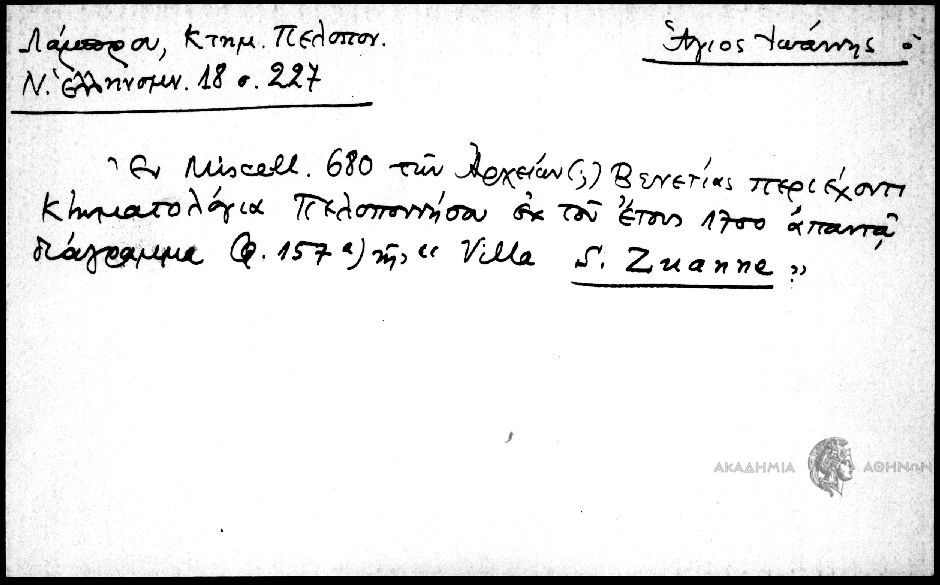 Λάμπρου, Κτημ. Πελοπον.
Ν. Ἑλληνομν. 18 σ. 227
Ἅγιος Ἰωάννης ὁ
Ἐν Miscell. 680 τῶν Ἀρχείων(;) Βενετίας περιέχοντι
Κτηματολόγια Πελοποννήσου ἐκ τοῦ ἔτους 1700 ἀπαντᾷ
διάγραμμα (φ. 157α) τῆς “ Villa S. Zuanne ”
ΑΚΑΔΗΜΙΑ ΑΘΗΝΩΝ